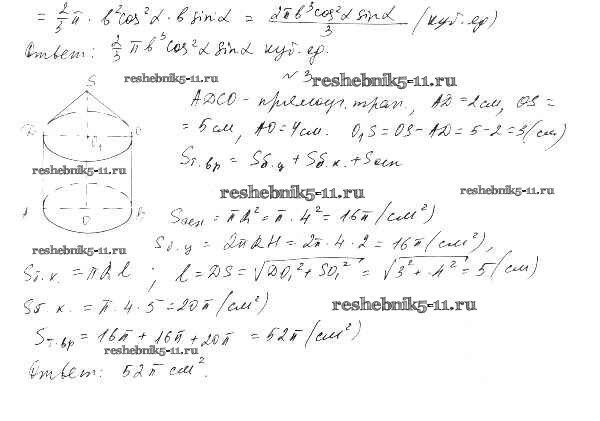 = 2/3 π · b² cos² α · b sin α = 2πb³ cos² α sin α / 3 (куб. ед)
Ответ: 2/3 π b³ cos² α sin α куб. ед.
reshebnik5-11.ru № 3 reshebnik5-11.ru
S
ADCO - прямоуг. трап, AD = 2 см, OS =
= 5 см, AO = 4 см. O₁S = OS - AD = 5 - 2 = 3 (см)
O₁
reshebnik5-11.ru
Sт.вр = Sб.ц + Sб.к. + Sосн
reshebnik5-11.ru reshebnik5-11.ru
A O B
Sосн = πR² = π · 4² = 16π (см²)
Sб.ц = 2πRH = 2π · 4 · 2 = 16π (см²),
reshebnik5-11.ru
Sб.к. = πRl ; l = DS = √DO₁² + SO₁² = √3² + 4² = 5 (см)
Sб.к. = π · 4 · 5 = 20π (см²) reshebnik5-11.ru
Sт.вр = 16π + 16π + 20π = 52π (см²)
reshebnik5-11.ru
Ответ: 52π см².